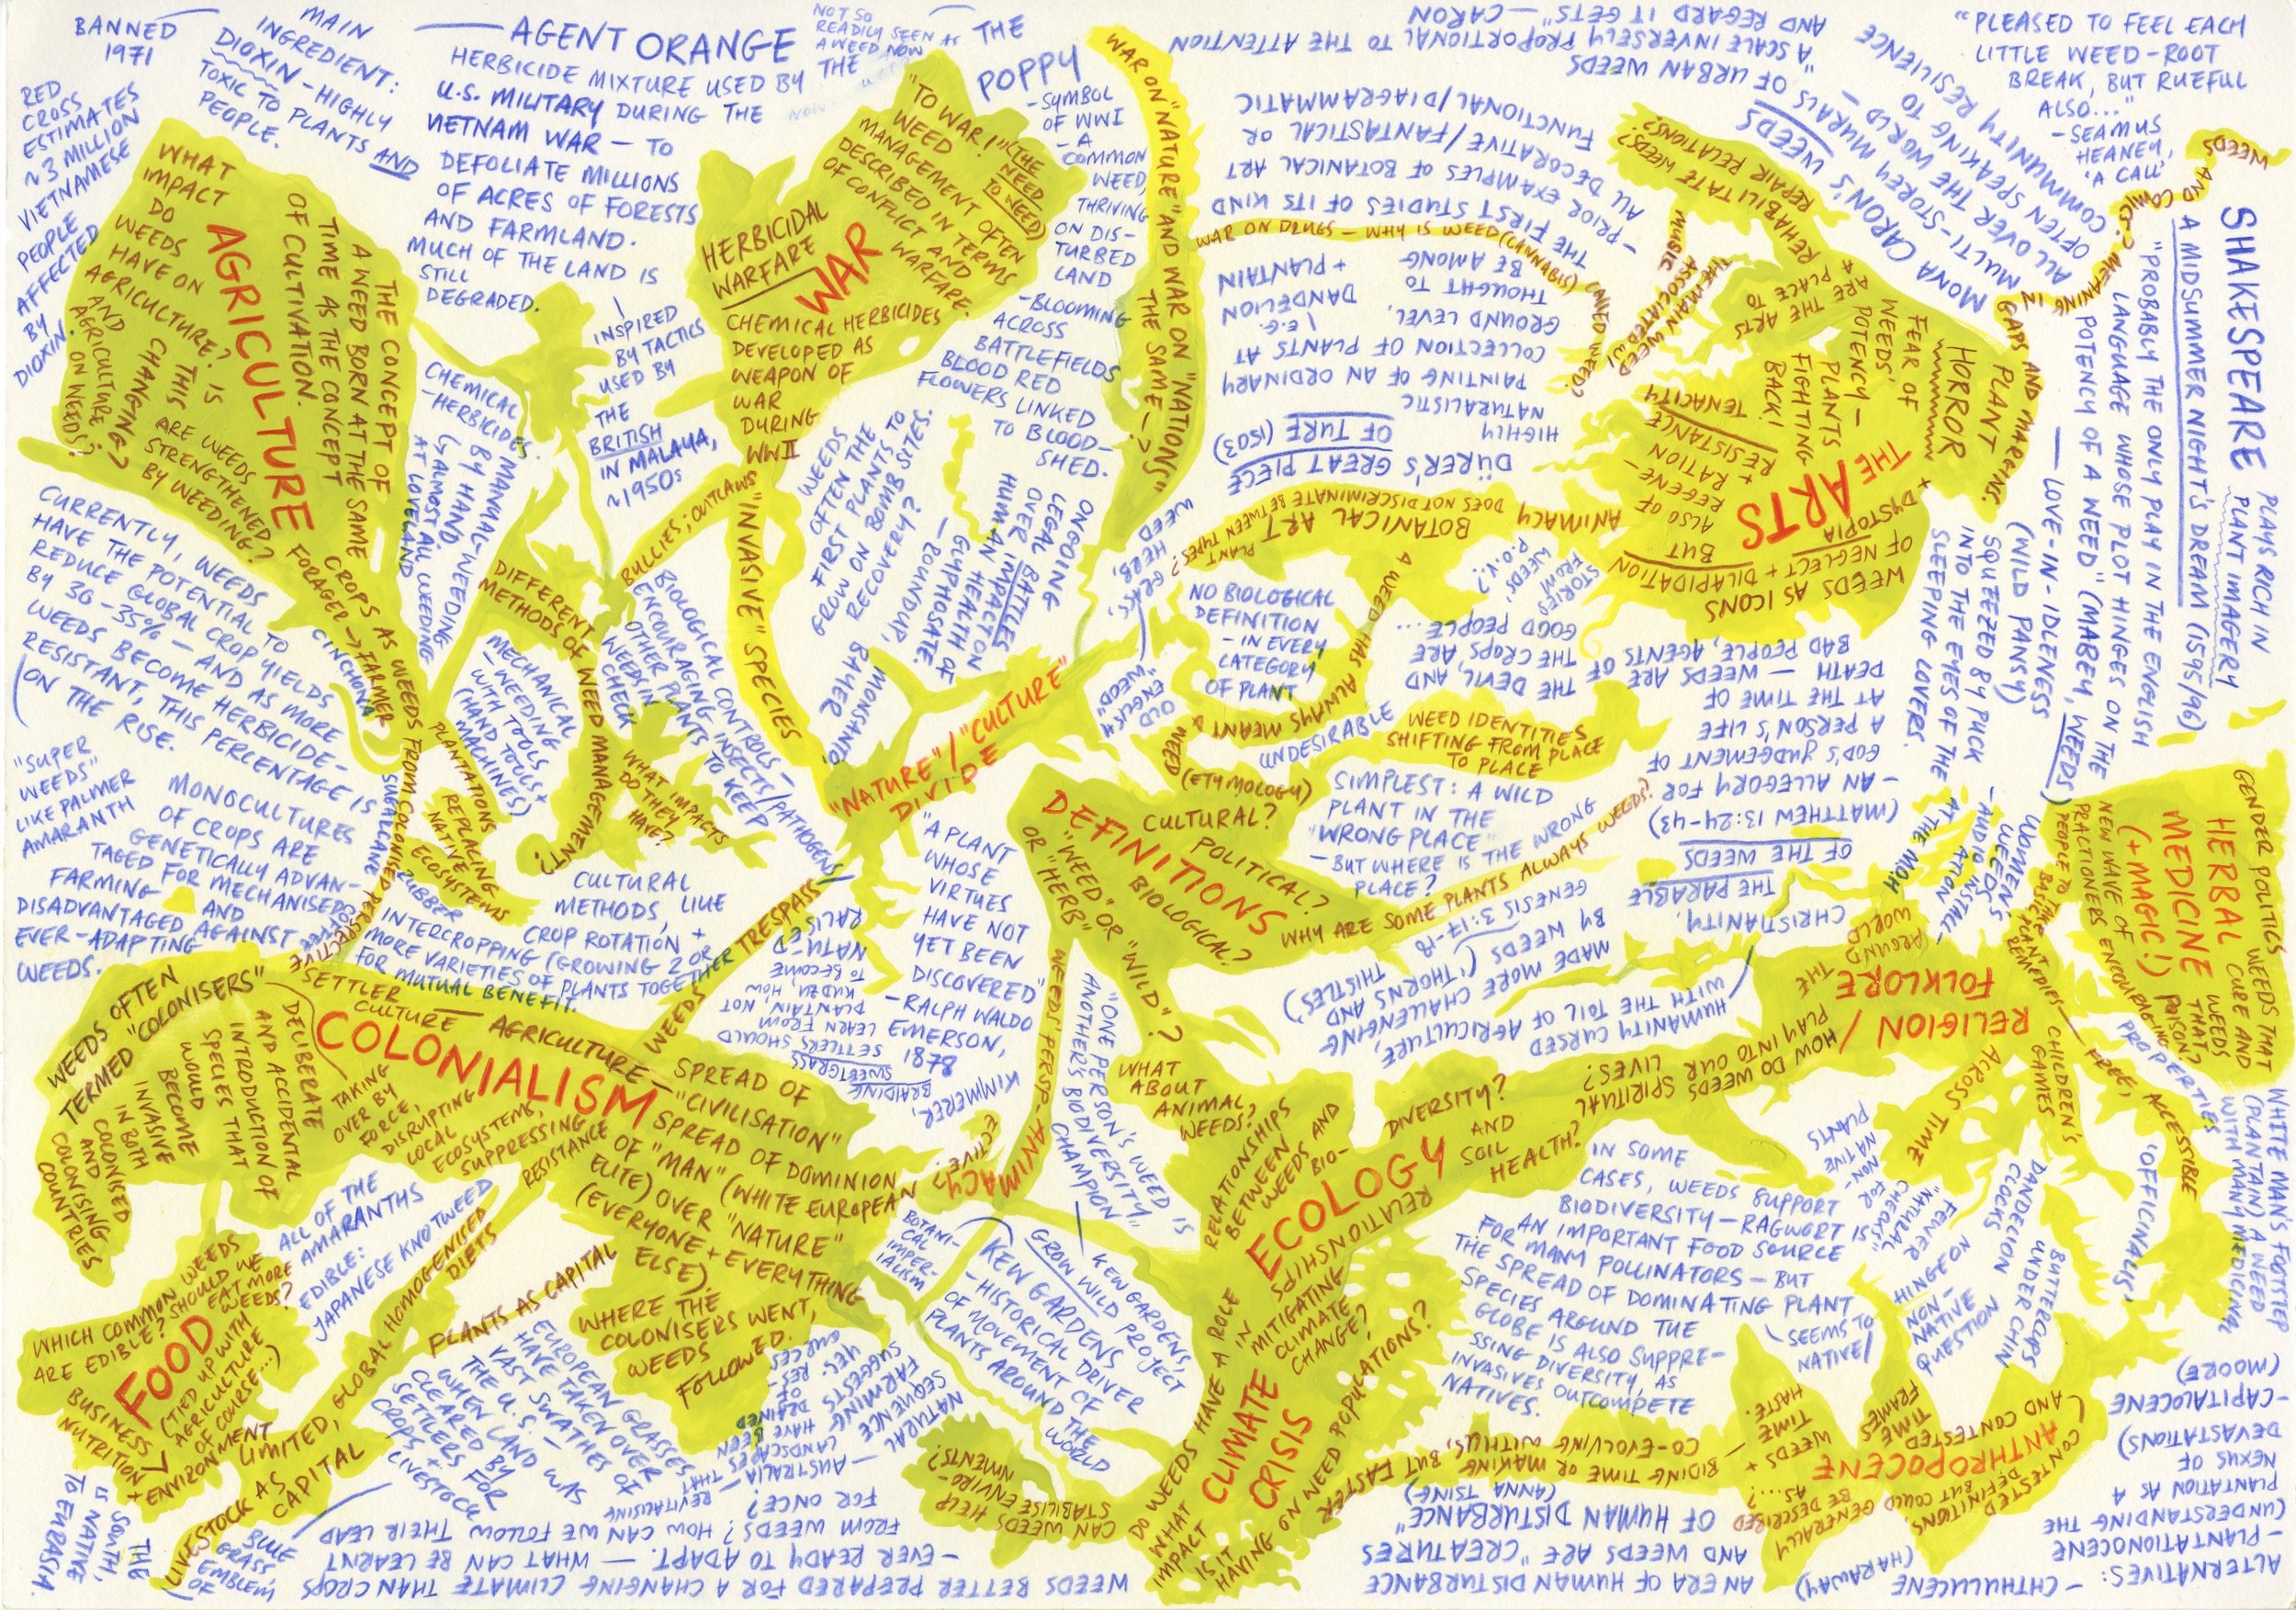 BANNED
1971
MAIN
INGREDIENT:
DIOXIN - HIGHLY
TOXIC TO PLANTS AND
PEOPLE.
RED
CROSS
ESTIMATES
~3 MILLION
VIETNAMESE
PEOPLE
AFFECTED
BY
DIOXIN.
AGENT ORANGE
HERBICIDE MIXTURE USED BY THE
U.S. MILITARY DURING THE
VIETNAM WAR — TO
DEFOLIATE MILLIONS
OF ACRES OF FORESTS
AND FARMLAND.
MUCH OF THE LAND IS
STILL
DEGRADED.
INSPIRED
BY TACTICS
USED BY
THE
BRITISH
IN MALAYA,
~1950s
NOT SO
READILY SEEN AS
A WEED NOW
THE
POPPY
- SYMBOL
OF WWI
- A
COMMON
WEED,
THRIVING
ON DIS-
TURBED
LAND
- BLOOMING
ACROSS
BATTLEFIELDS
BLOOD RED
FLOWERS LINKED
TO BLOOD-
SHED.
"TO WAR!"
(THE
NEED
TO WEED)
WEED
MANAGEMENT OFTEN
DESCRIBED IN TERMS
OF CONFLICT AND
WARFARE.
HERBICIDAL
WARFARE
WAR
CHEMICAL HERBICIDES
DEVELOPED AS
WEAPON OF
WAR
DURING
WWII
WEEDS
OFTEN THE
FIRST PLANTS TO
GROW ON BOMB SITES.
RECOVERY?
WAR ON "NATURE" AND WAR ON "NATIONS"
THE SAME —>
WAR ON DRUGS — WHY IS WEED (CANNABIS) CALLED WEED?
WHAT
IMPACT
DO
WEEDS
HAVE ON
AGRICULTURE? IS
THIS
CHANGING?
AND
AGRICULTURE
ON WEEDS?
AGRICULTURE
THE CONCEPT OF
A WEED BORN AT THE SAME
TIME AS THE CONCEPT
OF CULTIVATION.
ARE WEEDS
STRENGTHENED
BY WEEDING?
FORAGER → FARMER
CROPS AS WEEDS FROM COLONISED PERSPECTIVE
CINCHONA
SUGARCANE
COFFEE
RUBBER
PLANTATIONS
REPLACING
NATIVE
ECOSYSTEMS
CURRENTLY, WEEDS
HAVE THE POTENTIAL TO
REDUCE GLOBAL CROP YIELDS
BY 30-35% — AND AS MORE
WEEDS BECOME HERBICIDE-
RESISTANT, THIS PERCENTAGE IS
ON THE RISE.
"SUPER
WEEDS"
LIKE PALMER
AMARANTH
MONOCULTURES
OF CROPS ARE
GENETICALLY ADVAN-
TAGED FOR MECHANISED
FARMING AND
DISADVANTAGED AGAINST
EVER-ADAPTING
WEEDS.
CHEMICAL
- HERBICIDES
MANUAL - WEEDING
BY HAND
↳ ALMOST ALL WEEDING
AT LAVELAND
DIFFERENT
METHODS OF WEED MANAGEMENT?
MECHANICAL
- WEEDING
WITH TOOLS
(HAND TOOLS +
MACHINES)
WHAT IMPACTS
DO THEY
HAVE?
BIOLOGICAL CONTROLS -
ENCOURAGING INSECTS/PATHOGENS/
OTHER PLANTS TO KEEP
WEEDS IN
CHECK
CULTURAL
METHODS, LIKE
CROP ROTATION +
INTERCROPPING (GROWING 2 OR
MORE VARIETIES OF PLANTS TOGETHER
FOR MUTUAL BENEFIT.
BULLIES; OUTLAWS
"INVASIVE" SPECIES
"NATURE"/"CULTURE"
DIVIDE
ONGOING
LEGAL BATTLES
OVER IMPACT ON
HUMAN HEALTH OF
GLYPHOSATE.
- ROUNDUP,
BAYER
(MONSANTO)
WEEDS TRESPASS
"A PLANT
WHOSE
VIRTUES
HAVE NOT
YET BEEN
DISCOVERED"
- RALPH WALDO
EMERSON,
1878
BRAIDING
SWEETGRASS
SETTLERS SHOULD
LEARN FROM
PLANTAIN, NOT
KUDZU, HOW
TO BECOME
NATU-
RALISED
KIMMERER.
WEEDS' PERSP-
ECTIVE?
ANIMACY
"ONE PERSON'S WEED IS
ANOTHER'S BIODIVERSITY
CHAMPION"
DEFINITIONS
"WEED" OR
OR "HERB"
"WILD"?
CULTURAL?
POLITICAL?
BIOLOGICAL?
WEED
(ETYMOLOGY)
A WEED HAS ALWAYS MEANT
UNDESIRABLE
OLD
ENGLISH
"WEOD"
WEED, HERB, GRASS,
NO BIOLOGICAL
DEFINITION
- IN EVERY
CATEGORY
OF PLANT
WEED IDENTITIES
SHIFTING FROM PLACE
TO PLACE
SIMPLEST: A WILD
PLANT IN THE
"WRONG PLACE"
- BUT WHERE IS THE WRONG
PLACE?
WHY ARE SOME PLANTS ALWAYS WEEDS?
BOTANICAL ART
DOES NOT DISCRIMINATE BETWEEN
PLANT TYPES?
ANIMACY
STORIES
FROM
WEEDS'
P.O.V.?
DÜRER'S GREAT PIECE
OF TURF (1503)
HIGHLY
NATURALISTIC
PAINTING OF AN ORDINARY
COLLECTION OF PLANTS AT
GROUND LEVEL,
E.G.
DANDELION
+ PLANTAIN
THOUGHT TO
BE AMONG
THE FIRST STUDIES OF ITS KIND
- PRIOR EXAMPLES OF BOTANICAL ART
ALL DECORATIVE/FANTASTICAL OR
FUNCTIONAL/DIAGRAMMATIC
THE ARTS
WEEDS AS ICONS
OF NEGLECT + DILAPIDATION
+ DYSTOPIA
BUT
ALSO OF
REGENE-
RATION
+ RESISTANCE
TENACITY
PLANT
HORROR
FEAR OF
WEEDS'
POTENCY -
PLANTS
FIGHTING
BACK!
THE ARTS
ARE
A PLACE TO
REHABILITATE WEEDS?
REPAIR RELATIONS?
THE MAIN WEED
ASSOCIATED W/
MUSIC
IN GAPS AND MARGINS.
MONA CARON'S
WEEDS
MULTI-STOREY MURALS OF URBAN WEEDS
ALL OVER THE WORLD —
OFTEN SPEAKING TO
COMMUNITY RESILIENCE
"A SCALE INVERSELY PROPORTIONAL TO THE ATTENTION
AND REGARD IT GETS" — CARON
"PLEASED TO FEEL EACH
LITTLE WEED-ROOT
BREAK, BUT RUEFUL
ALSO..."
- SEAMUS
HEANEY,
'A CALL'
WEEDS AND COMICS?
MEANING
SHAKESPEARE
PLAYS RICH IN
PLANT IMAGERY
A MIDSUMMER NIGHT'S DREAM (1595/96)
"PROBABLY THE ONLY PLAY IN THE ENGLISH
LANGUAGE WHOSE PLOT HINGES ON THE
POTENCY OF A WEED" (MABEY, WEEDS)
— LOVE-IN-IDLENESS
(WILD PANSY)
SQUEEZED BY PUCK
INTO THE EYES OF THE
SLEEPING LOVERS.
- 'WOMEN'S
WEEDS'
AUDIO INSTALL-
ATION
AT THE MOH
CHRISTIANITY.
THE PARABLE
OF THE WEEDS
(MATTHEW 13:24-43)
- AN ALLEGORY FOR
GOD'S JUDGEMENT OF
A PERSON'S LIFE
AT THE TIME OF
DEATH — WEEDS ARE
BAD PEOPLE, AGENTS OF
THE DEVIL, AND
THE CROPS ARE
GOOD PEOPLE...
HUMANITY CURSED
WITH THE TOIL OF AGRICULTURE,
MADE MORE CHALLENGING
BY WEEDS ("THORNS AND
THISTLES")
GENESIS 3:17-18
RELIGION /
FOLKLORE
AROUND
THE
WORLD
ACROSS TIME
HOW DO WEEDS
PLAY INTO OUR SPIRITUAL
LIVES?
CHILDREN'S
GAMES
DANDELION
CLOCKS
BUTTERCUPS
UNDER CHIN
HERBAL
MEDICINE
(+ MAGIC!)
GENDER POLITICS
WEEDS THAT
CURE AND
WEEDS
THAT
POISON?
NEW WAVE OF
PRACTITIONERS ENCOURAGING
PEOPLE TO
TAKE
BASIC
PLANT
REMEDIES — FREE, ACCESSIBLE
PROPERTIES
'OFFICINALIS'
WHITE MAN'S FOOTSTEP
(PLANTAIN) A WEED
WITH MANY MEDICINAL
WEEDS OFTEN
TERMED "COLONISERS"
DELIBERATE
AND ACCIDENTAL
INTRODUCTION OF
SPECIES THAT
WOULD
BECOME
INVASIVE
IN BOTH
COLONISED
AND
COLONISING
COUNTRIES
COLONIALISM
SETTLER
CULTURE
— AGRICULTURE —
TAKING
OVER BY
FORCE,
DISRUPTING
LOCAL
ECOSYSTEMS,
SUPPRESSING
RESISTANCE
SPREAD OF
"CIVILISATION"
SPREAD OF DOMINION
OF "MAN" (WHITE EUROPEAN
ELITE) OVER "NATURE"
(EVERYONE + EVERYTHING
ELSE).
WHERE THE
COLONISERS WENT,
WEEDS
FOLLOWED.
PLANTS AS CAPITAL
BOTANI-
CAL
IMPER-
IALISM
KEW GARDENS
- HISTORICAL DRIVER
OF MOVEMENT OF
PLANTS AROUND THE
WORLD
GROW WILD PROJECT
KEW GARDENS,
EUROPEAN GRASSES
HAVE TAKEN OVER
VAST SWATHES OF
THE U.S. —
WHEN LAND WAS
CLEARED BY
SETTLERS FOR
CROPS +
LIVESTOCK
FOOD
WHICH COMMON WEEDS
ARE EDIBLE?
SHOULD WE
EAT MORE
WEEDS?
(TIED UP WITH
AGRICULTURE
OF COURSE...)
BUSINESS >
NUTRITION +
ENVIRONMENT
ALL OF THE
AMARANTHS
EDIBLE:
JAPANESE KNOTWEED
LIMITED, GLOBAL HOMOGENISED
DIETS
LIVESTOCK AS
CAPITAL
BLUE
GRASS
EMBLEM
OF
THE
SOUTH,
IS NATIVE
TO EURASIA.
NATURAL
SEQUENCE
FARMING
SUGGESTS
YES.
— AUSTRALIA —
REVITALISING
LANDSCAPES THAT
HAVE BEEN
DRAINED
OF RES-
OURCES
WEEDS BETTER PREPARED FOR A CHANGING CLIMATE THAN CROPS
- EVER READY TO ADAPT. — WHAT CAN BE LEARNT
FROM WEEDS? HOW CAN WE FOLLOW THEIR LEAD
FOR ONCE?
CAN WEEDS HELP
STABILISE ENVIRO-
NMENTS?
ECOLOGY
WHAT
ABOUT
ANIMAL
WEEDS?
RELATIONSHIPS
BETWEEN
WEEDS AND
BIO-
DIVERSITY?
AND
SOIL
HEALTH?
RELATIONSHIPS
DO WEEDS HAVE A ROLE
IN
MITIGATING
CLIMATE
CHANGE?
CLIMATE
CRISIS
WHAT
IMPACT
IS IT
HAVING ON WEED POPULATIONS?
IN SOME
CASES, WEEDS SUPPORT
BIODIVERSITY — RAGWORT IS
AN IMPORTANT FOOD SOURCE
FOR MANY POLLINATORS — BUT
THE SPREAD OF DOMINATING PLANT
SPECIES AROUND THE
GLOBE IS ALSO SUPPRE-
SSING DIVERSITY, AS
INVASIVES OUTCOMPETE
NATIVES.
SEEMS TO
HINGE ON
NATIVE/
NON-
NATIVE
QUESTION
FEWER
"NATURAL
CHECKS"
FOR
NON-
NATIVE
PLANTS
ANTHROPOCENE
CONTESTED
DEFINITIONS,
BUT COULD
GENERALLY
BE DESCRIBED
AS...?
(AND CONTESTED
TIME
FRAMES
WEEDS +
TIME
— TIME
HASTE.
CO-EVOLVING WITH US,
BIDING TIME OR MAKING
BUT FASTER
AN ERA OF HUMAN DISTURBANCE
AND WEEDS ARE "CREATURES
OF HUMAN DISTURBANCE"
(ANNA TSING)
ALTERNATIVES:
- CHTHULUCENE
(HARAWAY)
- PLANTATIONOCENE
(UNDERSTANDING THE
PLANTATION AS A
NEXUS OF
DEVASTATIONS)
- CAPITALOCENE
(MOORE)